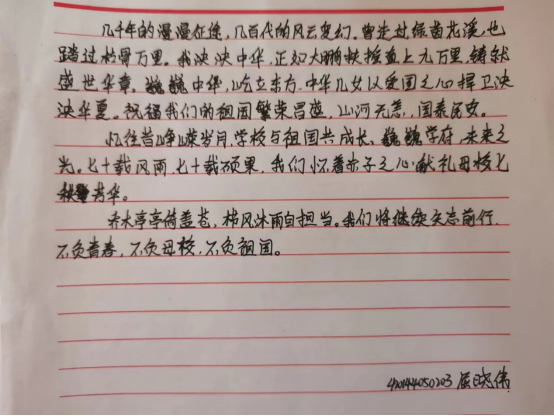 几千年的漫漫征途，几百代的风云变幻。曾走过绿茵花溪，也
踏过枯骨万里。我泱泱中华，正如大鹏扶摇直上九万里，铸就
盛世华章。巍巍中华，屹立东方，中华儿女以爱国之心捍卫泱
泱华夏。祝福我们的祖国繁荣昌盛，山河无恙，国泰民安。
忆往昔峥嵘岁月，学校与祖国共成长。巍巍学府，未来之
光。七十载风雨，七十载硕果，我们怀着赤子之心献礼母校七
秩芳华。
乔木亭亭荷盖苍，栉风沐雨自担当。我们将继续矢志前行，
不负青春，不负母校，不负祖国。
420144050203 屈晓伟